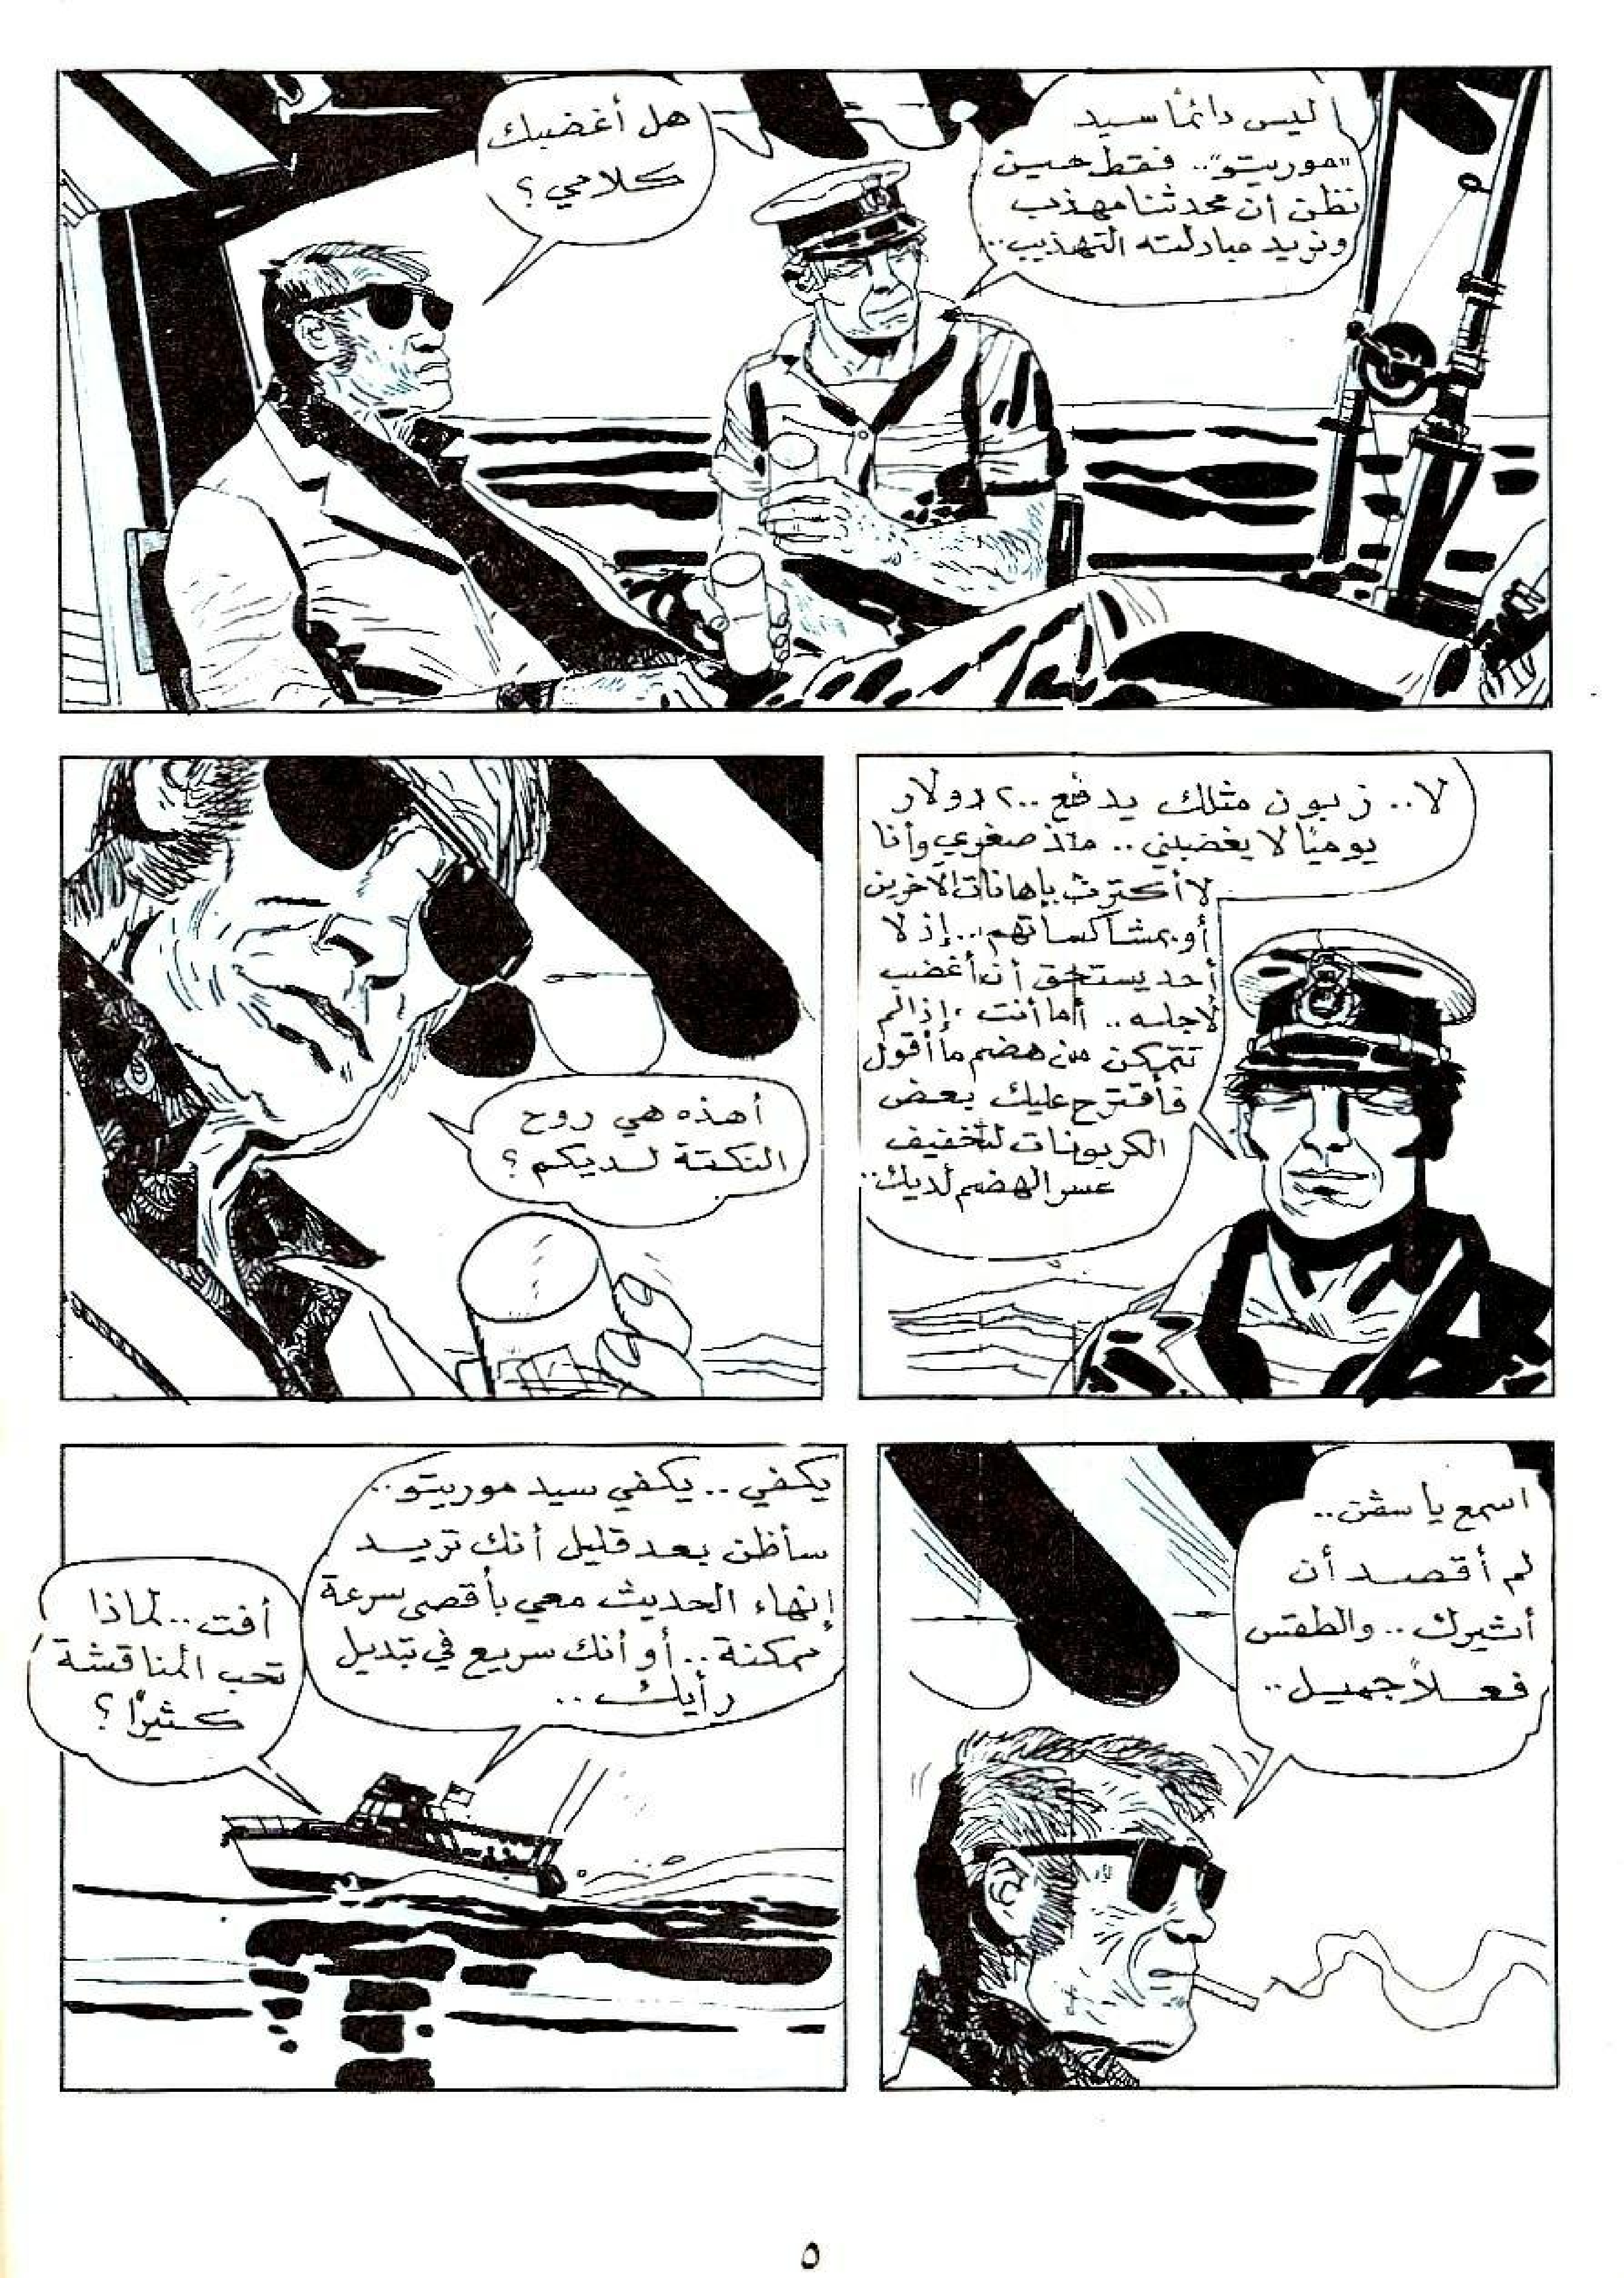 ليس دائمًا سيد
"موريتو".. فقط حين
نظن أن محدثنا مهذب
ونريد مبادلته التهذيب..
هل أغضبك
كلامي؟
لا.. زبون مثلك يدفع ٢٠٠ دولار
يوميًا لا يغضبني.. منذ صغري وأنا
لا أكترث بإهانات الآخرين
أو بمشاكساتهم... إذ لا
أحد يستحق أن أغضب
لأجله.. أما أنت، إذا لم
تتمكن من هضم ما أقول
فأقترح عليك بعض
الكربونات لتخفيف
عسر الهضم لديك..
أهذه هي روح
النكتة لديكم؟
اسمع يا سڤن..
لم أقصد أن
أثيرك.. والطقس
فعلاً جميل..
يكفي.. يكفي سيد موريتو..
سأظن بعد قليل أنك تريد
إنهاء الحديث معي بأقصى سرعة
ممكنة.. أو أنك سريع في تبديل
رأيك..
أفت.. لماذا
تحب المناقشة
كثيرًا؟
٥